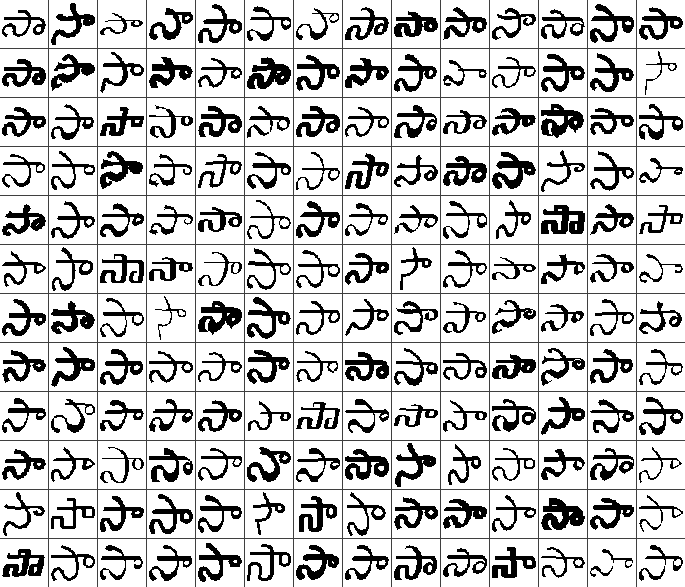 సా సా సా సా సా సా సా సా సా సా సా సా సా సా
సా సా సా సా సా సా సా సా సా సా సా సా సా సా
సా సా సా సా సా సా సా సా సా సా సా సా సా సా
సా సా సా సా సా సా సా సా సా సా సా సా సా సా
సా సా సా సా సా సా సా సా సా సా సా సా సా సా
సా సా సా సా సా సా సా సా సా సా సా సా సా సా
సా సా సా సా సా సా సా సా సా సా సా సా సా సా
సా సా సా సా సా సా సా సా సా సా సా సా సా సా
సా సా సా సా సా సా సా సా సా సా సా సా సా సా
సా సా సా సా సా సా సా సా సా సా సా సా సా సా
సా సా సా సా సా సా సా సా సా సా సా సా సా సా
సా సా సా సా సా సా సా సా సా సా సా సా సా సా